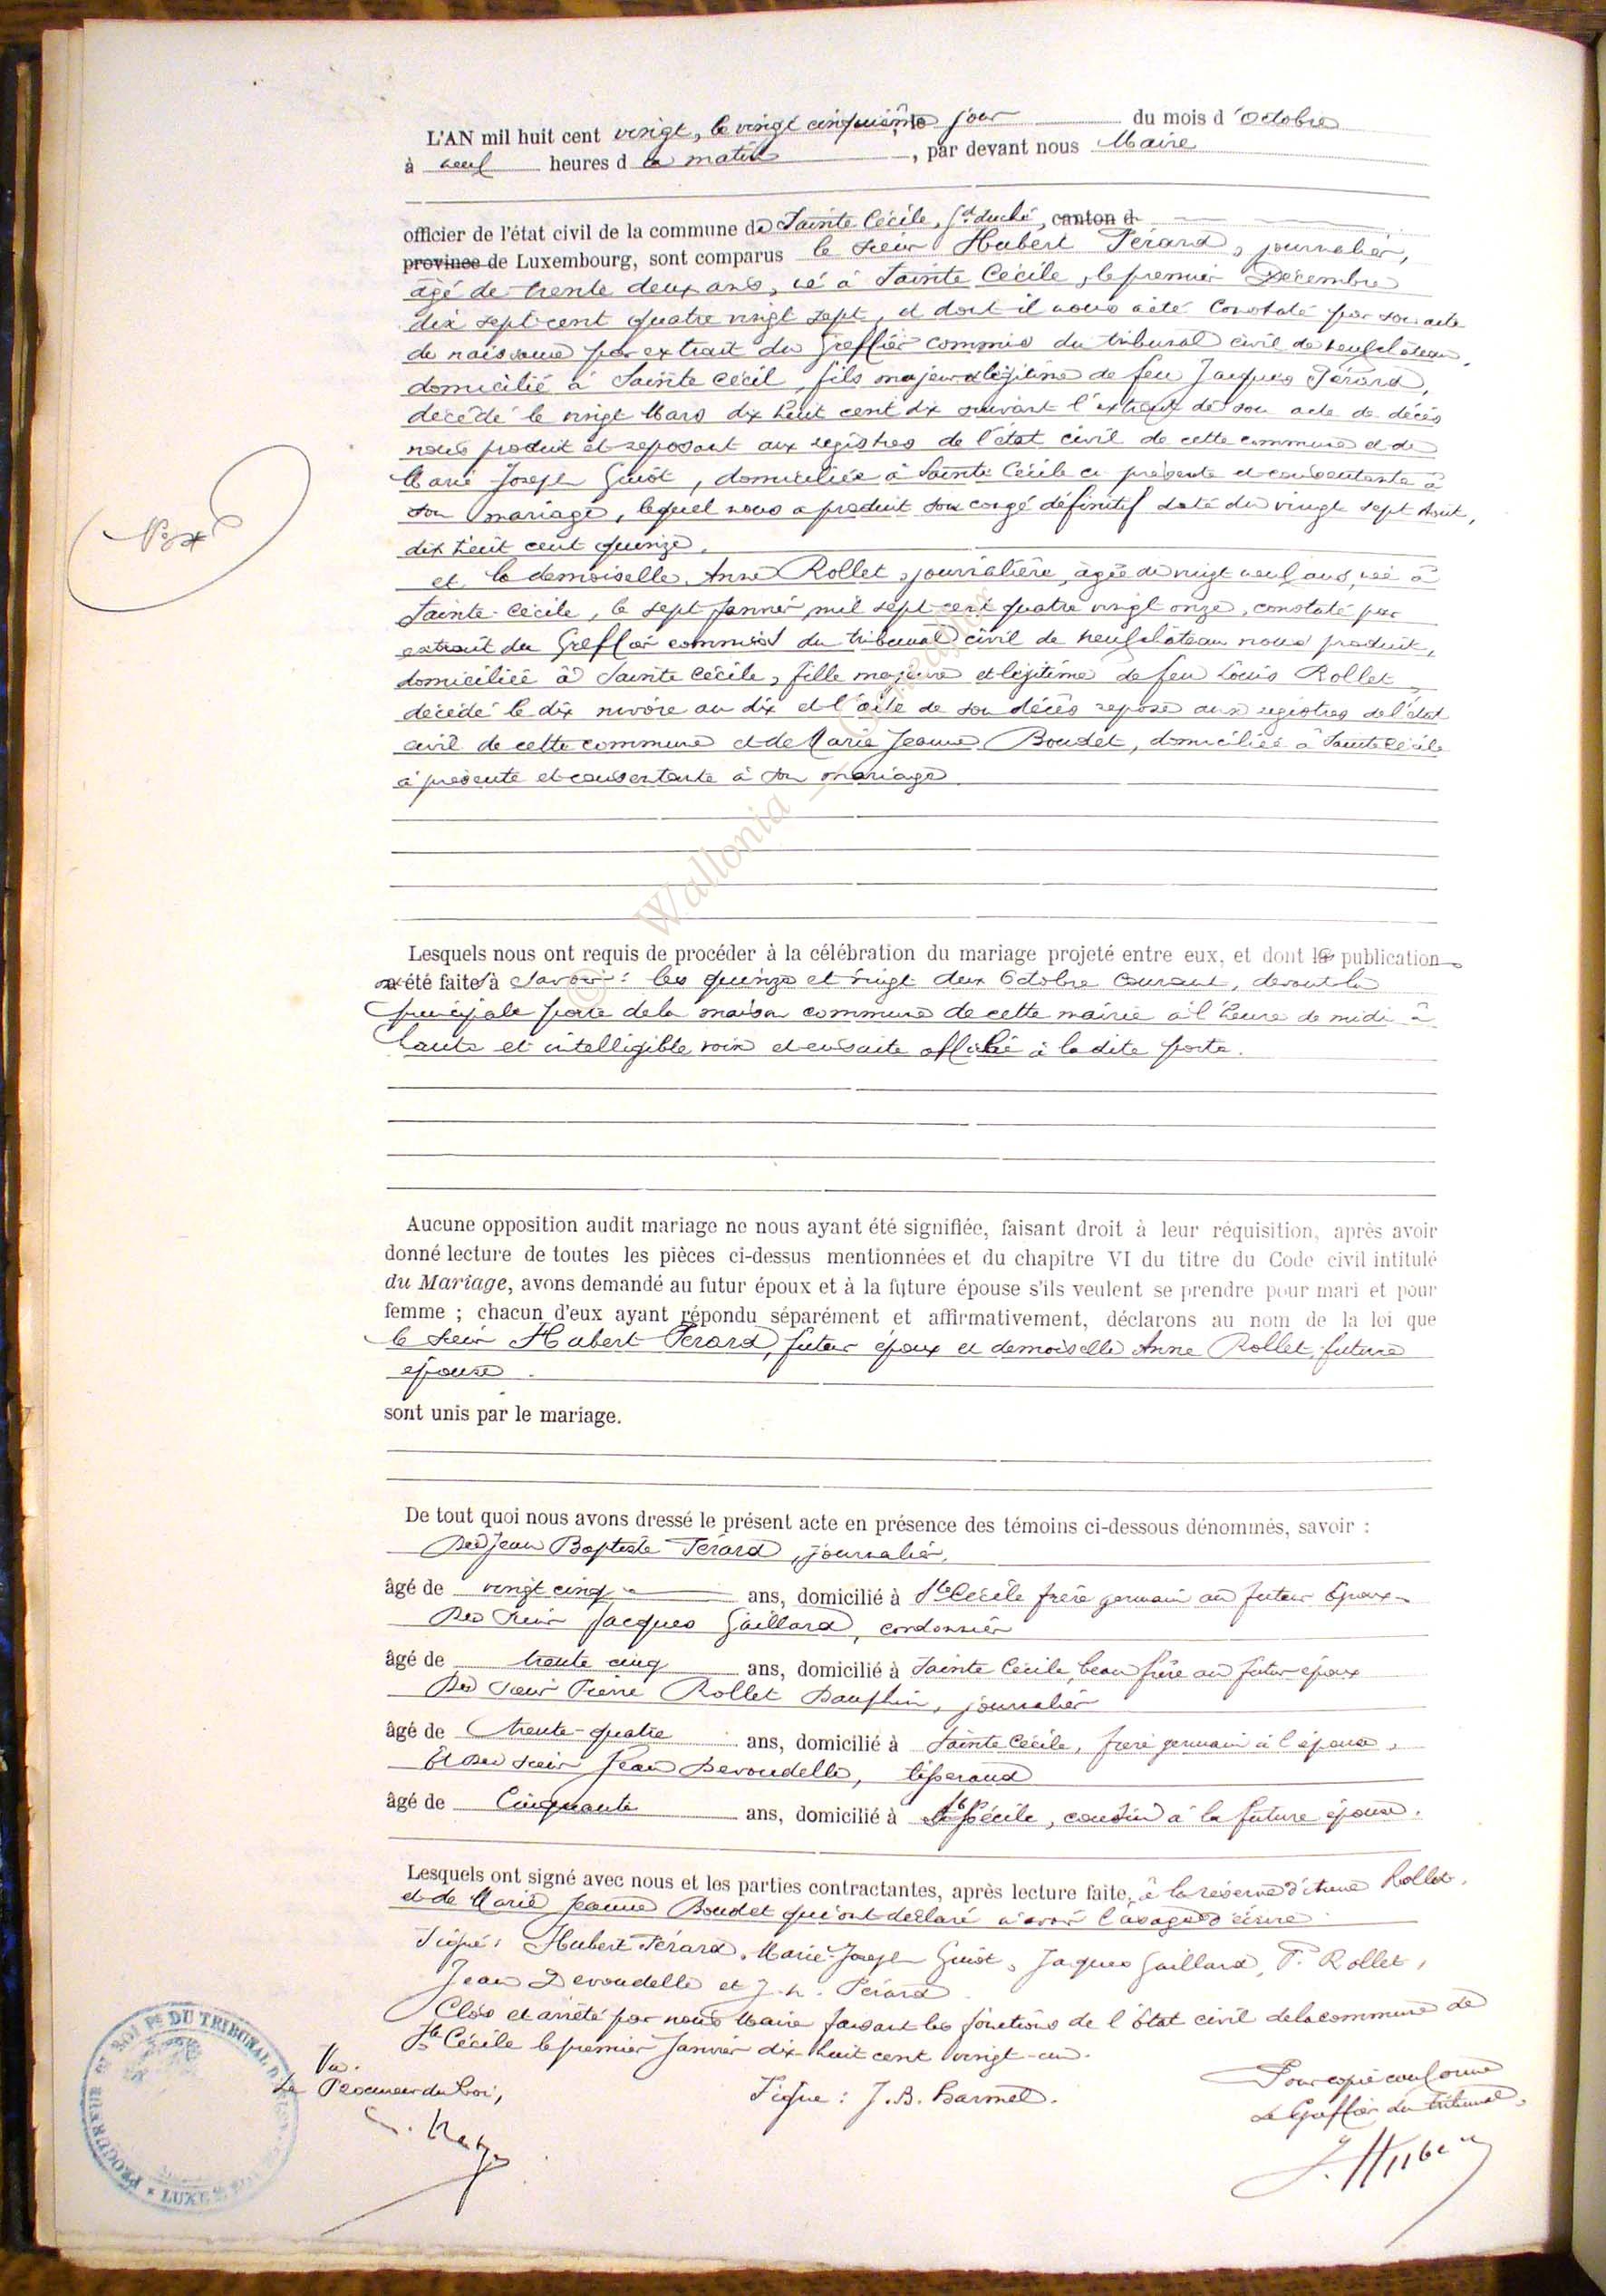 L'AN mil huit cent vingt, le vingt cinquième jour du mois d'octobre
à neuf heures du matin, par devant nous Maire
officier de l'état civil de la commune de Sainte Cécile, Gd duché, canton d
province de Luxembourg, sont comparus le sieur Hubert Pérard, journalier,
âgé de trente deux ans, né à Sainte Cécile, le premier Décembre
dix sept cent quatre vingt sept, et dont il nous a été constaté par son acte
de naissance par extrait du Greffier commis du tribunal civil de neufchâteau,
domicilié à Sainte Cécil, fils majeur et légitime de feu Jacques Pérard,
décédé le vingt Mars dix huit cent dix suivant l'extrait de son acte de décès
nous produit et reposant aux registres de l'état civil de cette commune et de
Marie Joseph Guiot, domiciliée à Sainte Cécile ci présente et consentante à
son mariage, lequel nous a produit son congé définitif daté du vingt sept Août,
dix huit cent quinze.
et la demoiselle Anne Rollet, journalière, âgée de vingt neuf ans, née à
Sainte-Cécile, le sept Janvier mil sept cent quatre vingt onze, constaté par
extrait du Greffier commis du tribunal civil de neufchâteau nous produit,
domiciliée à Sainte Cécile, fille majeure et légitime de feu Louis Rollet
décédé le dix nivôse an dix et l'acte de son décès repose aux registres de l'état
civil de cette commune et de Marie Jeanne Boudet, domiciliée à Sainte Cécile
ci présente et consentante à son mariage.
© Wallonia
Lesquels nous ont requis de procéder à la célébration du mariage projeté entre eux, et dont les publications
ont été faites à savoir : les quinze et vingt deux Octobre courant, devant la
principale porte de la maison commune de cette mairie à l'heure de midi à
haute et intelligible voix et ensuite affiché à la dite porte.
Aucune opposition audit mariage ne nous ayant été signifiée, faisant droit à leur réquisition, après avoir
donné lecture de toutes les pièces ci-dessus mentionnées et du chapitre VI du titre du Code civil intitulé
du Mariage, avons demandé au futur époux et à la future épouse s'ils veulent se prendre pour mari et pour
femme ; chacun d'eux ayant répondu séparément et affirmativement, déclarons au nom de la loi que
le sieur Hubert Pérard, futur époux et demoiselle Anne Rollet, future
épouse.
sont unis par le mariage.
De tout quoi nous avons dressé le présent acte en présence des témoins ci-dessous dénommés, savoir :
Des Jean Baptiste Pérard, journalier,
âgé de vingt cinq ans, domicilié à Ste Cécile frère germain au futur époux
Des sieur Jacques Gaillard, cordonnier
âgé de trente cinq ans, domicilié à Sainte Cécile, beau frère au futur époux
Des sieur Pierre Rollet Dauphin, journalier
âgé de trente-quatre ans, domicilié à Sainte Cécile, frère germain à l'épouse,
Et Des sieur Jean Devoudelle, tisserand
âgé de Cinquante ans, domicilié à Ste Cécile, cousin à la future épouse.
Lesquels ont signé avec nous et les parties contractantes, après lecture faite, à la réserve d'Anne Rollet,
et de Marie Jeanne Boudet qui ont déclaré n'avoir l'usage d'écrire.
Signé : Hubert Pérard, Marie-Joseph Guiot, Jaques Gaillard, P. Rollet,
Jean Devoudelle et J. h. Pérard.
Clos et arrêté par nous Maire faisant les fonctions de l'état civil de la commune de
Ste Cécile le premier Janvier dix huit cent vingt-un.
Signé : J. B. Harmel.
Vu.
Le Procureur du Roi,
Pour copie conforme
Le Greffier du tribunal,
PROCUREUR DU ROI PS DU TRIBUNAL D'ARLON * LUXEMBOURG